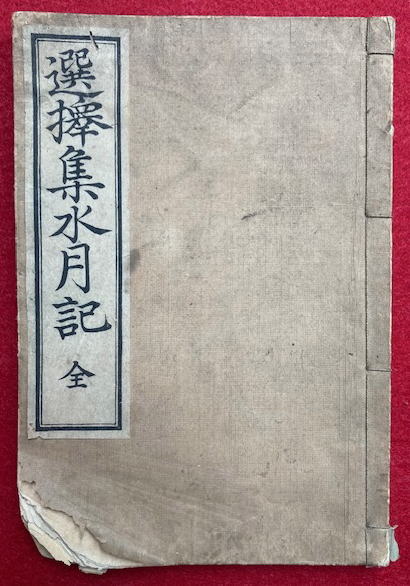 選擇集水月記 全